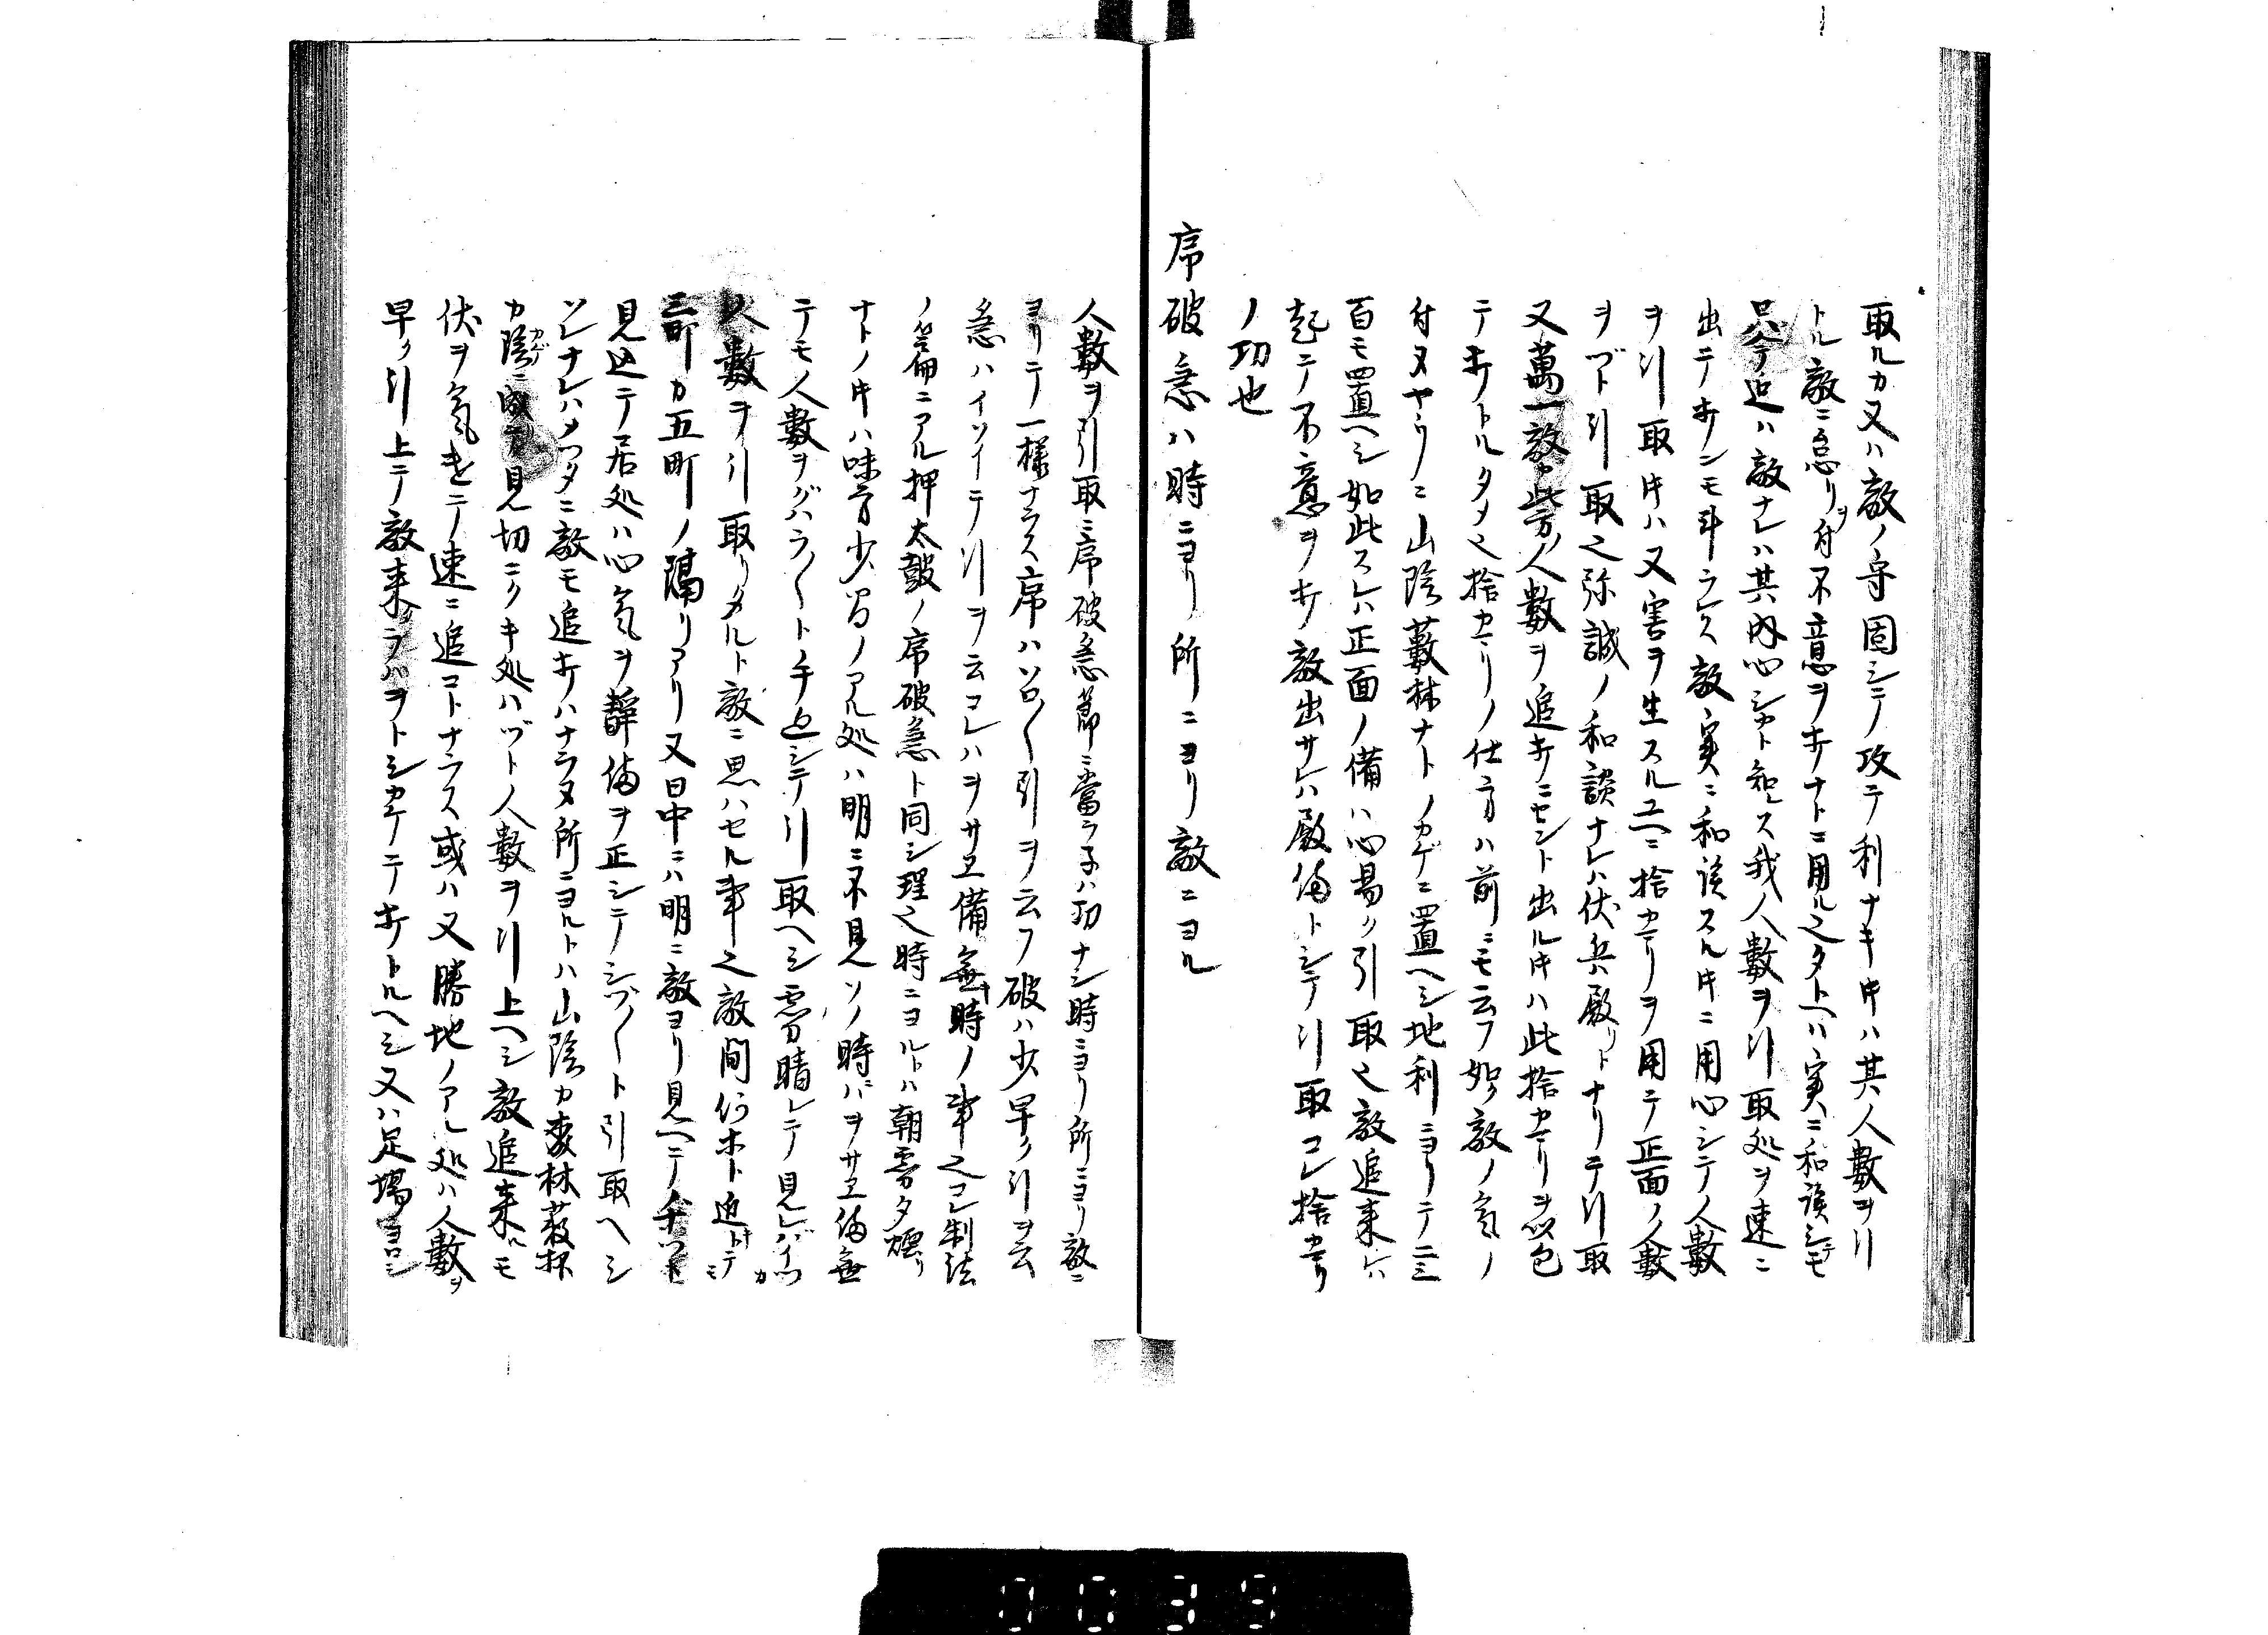 取ルカ又ハ敵ノ守固シテ攻テ利ナキ时ハ其人數ヲ引
トル敵ニ怠リヲ付不意ヲ打ナトニ用ル之タトヘハ実ニ和談シテモ
ハ敵ナレハ其内心シカト知レス我人數ヲ引取処ヲ速ニ
出テ打ンモ斗ラレス敵実ニ和談スル时ニ用心シテ人數
ヲ引取时ハ又害ヲ生スルユヘニ捨カマリヲ用テ正面ノ人數
ヲヅト引取之弥誠ノ和談ナレハ伏兵殿リトナリテ引取
又萬一敵カ此方ノ人數ヲ追打ニセント出ル时ハ此捨カマリヲ以色
テ打トルタメ之捨カマリノ仕方ハ前ニモ云フ如ク敵ノ氣ノ
付ヌヤウニ山陰藪林ナトノカゲニ置ヘシ地利ニヨリテ二三
百モ置ヘシ如此スレハ正面ノ備ハ心易ク引取之敵追来レハ
起テ不意ヲ打敵出サレハ殿備トシテ引取コレ捨カマリ
ノ功也
席破急ハ時ニヨリ所ニヨリ敵ニヨル
人數ヲ引取ニ席破急節ニ當ラ子ハ功ナシ時ニヨリ所ニヨリ敵ニ
ヨリテ一様ナラス席ハソロ〱引ヲ云フ破ハ少早ク引ヲ云
急ハイソイテ引ヲ云コレハヲサヱ備無キ時ノ事之コレ制法
ノ篇ニアル押太皷ノ席破急ト同シ理之時ニヨルトハ朝霧夕煙リ
ナトノ时ハ味方少昏ノアル処ハ明ニ不見ソノ時バヲサヱ備無
テモ人數ヲバラ〱トチ迯シテ引取ヘシ霧晴レテ見レバイツカ
人數ヲ引取リタルト敵ニ思ハセル事之敵間何ホト近トテモ
三町カ五町ノ隔リアリ又日中ニハ明ニ敵ヨリ見ヘテ
見込テ居処ハ心氣ヲ静備ヲ正シテシヅ〱ト引取ヘシ
ソレナレハメツタニ敵モ追打ハナラヌ所ニヨルトハ山陰カ森林藪抔
カ陰ニ見切ニクキ処ハヅト人數ヲ引上ヘシ敵追来ルモ
伏ヲ氣遣テ速ニ追コトナラス或ハ又勝地ノアル処ハ人數ヲ
早ク引上テ敵来ラバヲトシカケテ打トルヘシ又ハ足場ヨロシ